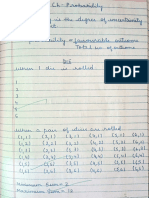 Ch - Probability
Probability is the degree of uncertainty
probability = favourable outcome
Total no. of outcome
Die
When 1 die is rolled
1
2
3
4
5
6
When a pair of dice are rolled
(1,1) (2,1) (3,1) (4,1) (5,1) (6,1)
(1,2) (2,2) (3,2) (4,2) (5,2) (6,2)
(1,3) (2,3) (3,3) (4,3) (5,3) (6,3)
(1,4) (2,4) (3,4) (4,4) (5,4) (6,4)
(1,5) (2,5) (3,5) (4,5) (5,5) (6,5)
(1,6) (2,6) (3,6) (4,6) (5,6) (6,6)
Minimum Sum = 2
Maximum Sum = 12